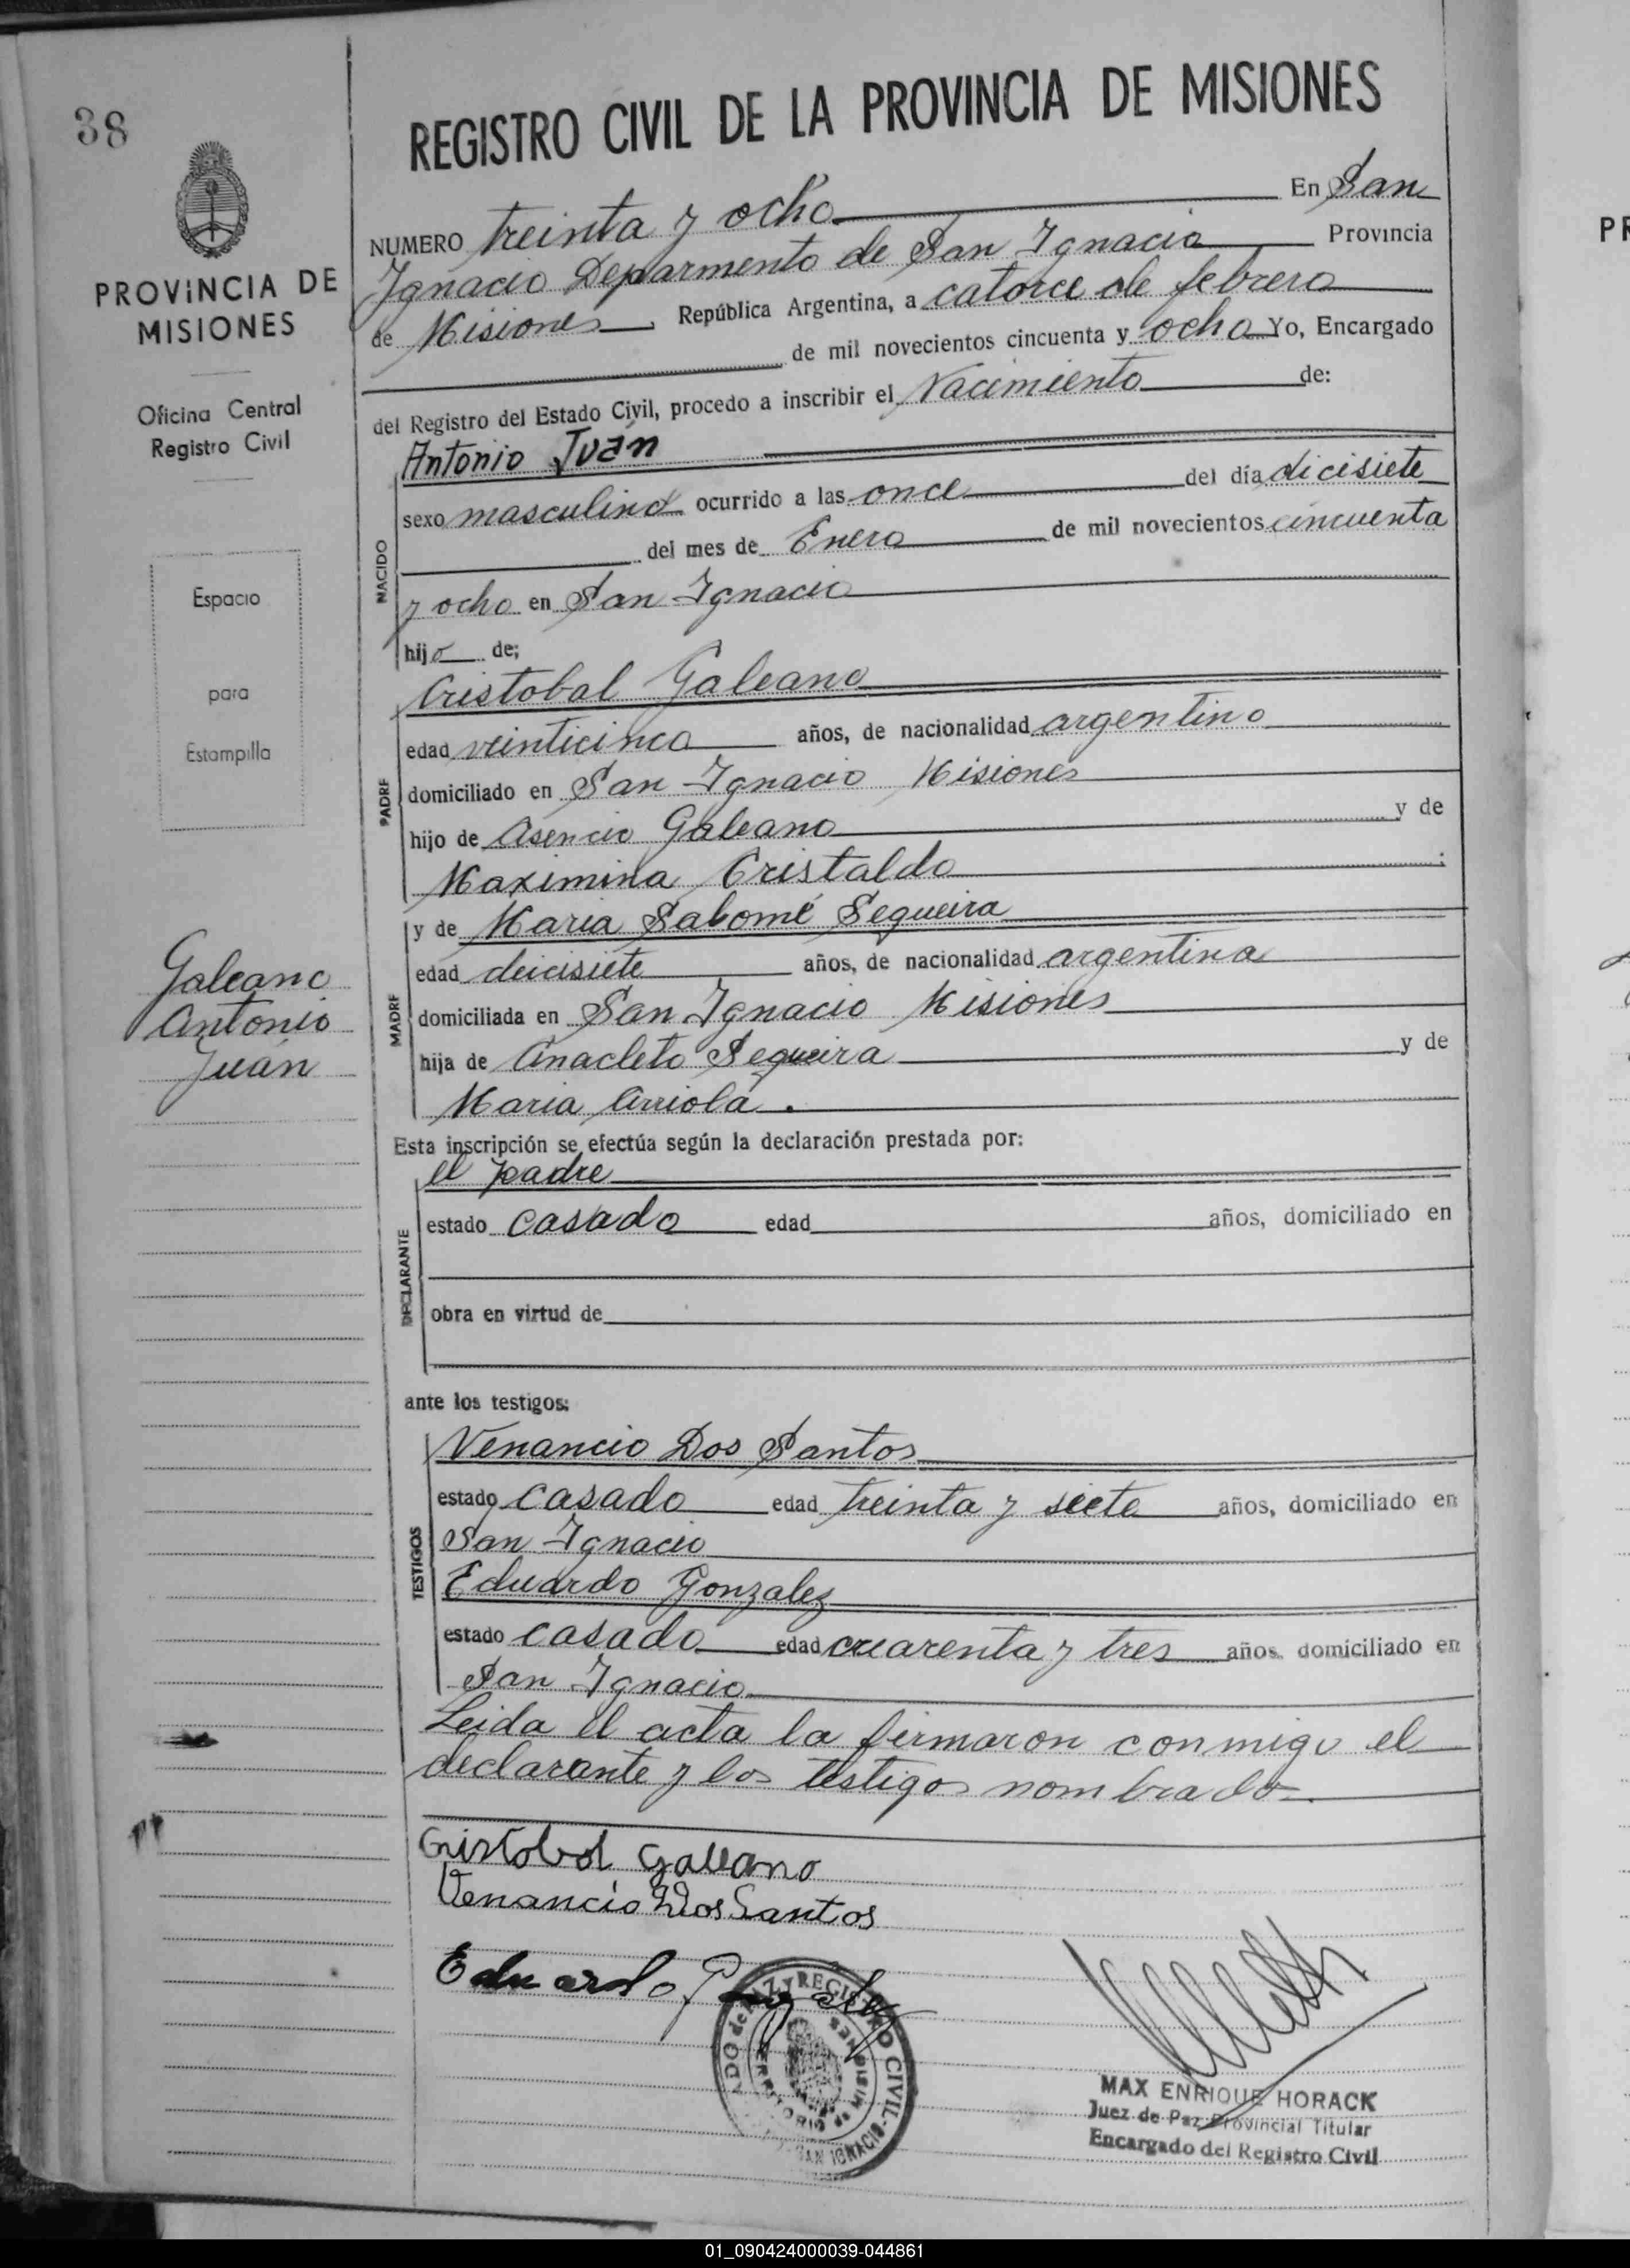 38
PROVINCIA DE
MISIONES
Oficina Central
Registro Civil
Espacio
para
Estampilla
Galeano
Antonio
Juán
REGISTRO CIVIL DE LA PROVINCIA DE MISIONES
NUMERO treinta y ocho En San
Ignacio Deparmento de San Ignacio Provincia
de Misiones República Argentina, a catorce de febrero
de mil novecientos cincuenta y ocho Yo, Encargado
del Registro del Estado Civil, procedo a inscribir el Nacimiento de:
NACIDO
Antonio Juán
sexo masculino ocurrido a las once del día dicisiete
del mes de Enero de mil novecientos cincuenta
y ocho en San Ignacio
hijo de;
PADRE
Cristobal Galeano
edad veinticinco años, de nacionalidad argentino
domiciliado en San Ignacio Misiones
hijo de Asencio Galeano y de
Maximina Cristaldo
MADRE
y de Maria Salomé Sequeira
edad deicisiete años, de nacionalidad argentina
domiciliada en San Ignacio Misiones
hija de Anacleto Sequeira y de
Maria Arriola.
Esta inscripción se efectúa según la declaración prestada por:
DECLARANTE
el padre
estado casado edad años, domiciliado en
obra en virtud de
ante los testigos:
TESTIGOS
Venancio Dos Santos
estado casado edad treinta y siete años, domiciliado en
San Ignacio
Eduardo Gonzalez
estado casado edad cuarenta y tres años, domiciliado en
San Ignacio
Leida el acta la firmaron conmigo el
declarante y los testigos nombrados.
Cristobal Galeano
Venancio Dos Santos
Eduardo Gonzalez
REGISTRO CIVIL - SAN IGNACIO
MAX ENRIQUE HORACK
Juez de Paz Provincial Titular
Encargado del Registro Civil
PR
01_090424000039-044861